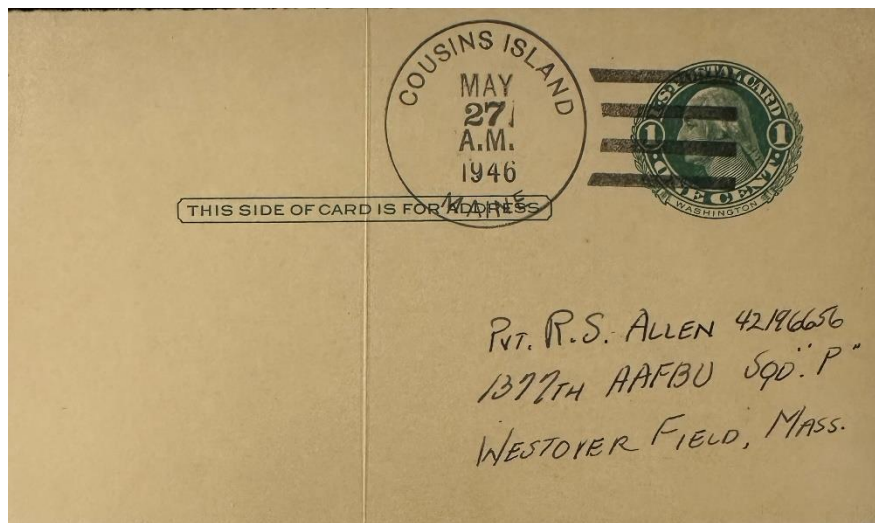 COUSINS ISLAND
MAY
27
A.M.
1946
MAINE
U.S. POSTAL CARD
1 1
ONE CENT
WASHINGTON
THIS SIDE OF CARD IS FOR ADDRESS
PVT. R.S. ALLEN 42196656
1377TH AAFBU SQD. "P"
WESTOVER FIELD, MASS.